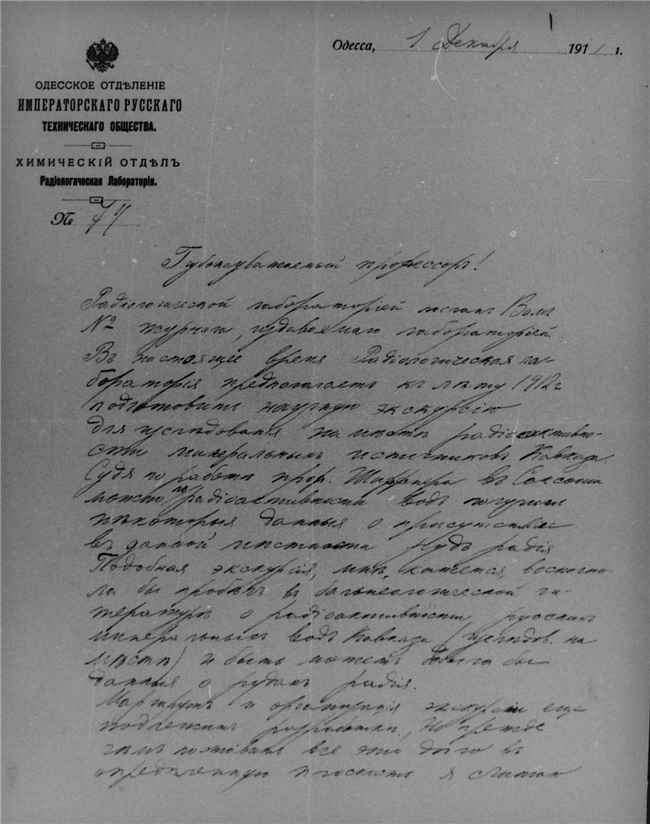 Одесса, 1 Декабря 1911 г.
ОДЕССКОЕ ОТДѢЛЕНІЕ
ИМПЕРАТОРСКАГО РУССКАГО
ТЕХНИЧЕСКАГО ОБЩЕСТВА.
ХИМИЧЕСКІЙ ОТДѢЛЪ
Радіологическая Лабораторія.
№ 77
Глубокоуважаемый профессоръ!
Радіологической лабораторіей посланъ Вамъ
№ журнала, издаваемаго лабораторіей.
Въ настоящее время Радіологическая ла-
бораторія предполагаетъ къ лѣту 1912 г
подготовить научную экскурсію
для изслѣдованія на мѣстѣ радіоактивно-
сти минеральныхъ источниковъ Кавказа.
Судя по работѣ проф. въ Саксоніи
можно по радіоактивности водъ получить
нѣкоторыя данныя о присутствіи
въ данной мѣстности рудъ радія
Подобная экскурсія, мнѣ кажется, восполни-
ла бы пробѣлъ въ бальнеологической ли-
тературѣ о радіоактивности русскихъ
минеральныхъ водъ Кавказа (изслѣдов. на
мѣстѣ) и быть можетъ бы
данныя о рудахъ радія.
Маршрутъ и организація экскурсіи еще
подлежитъ разработкѣ, но прежде
чѣмъ поставить все это дѣло въ
опредѣленную плоскость я считаю